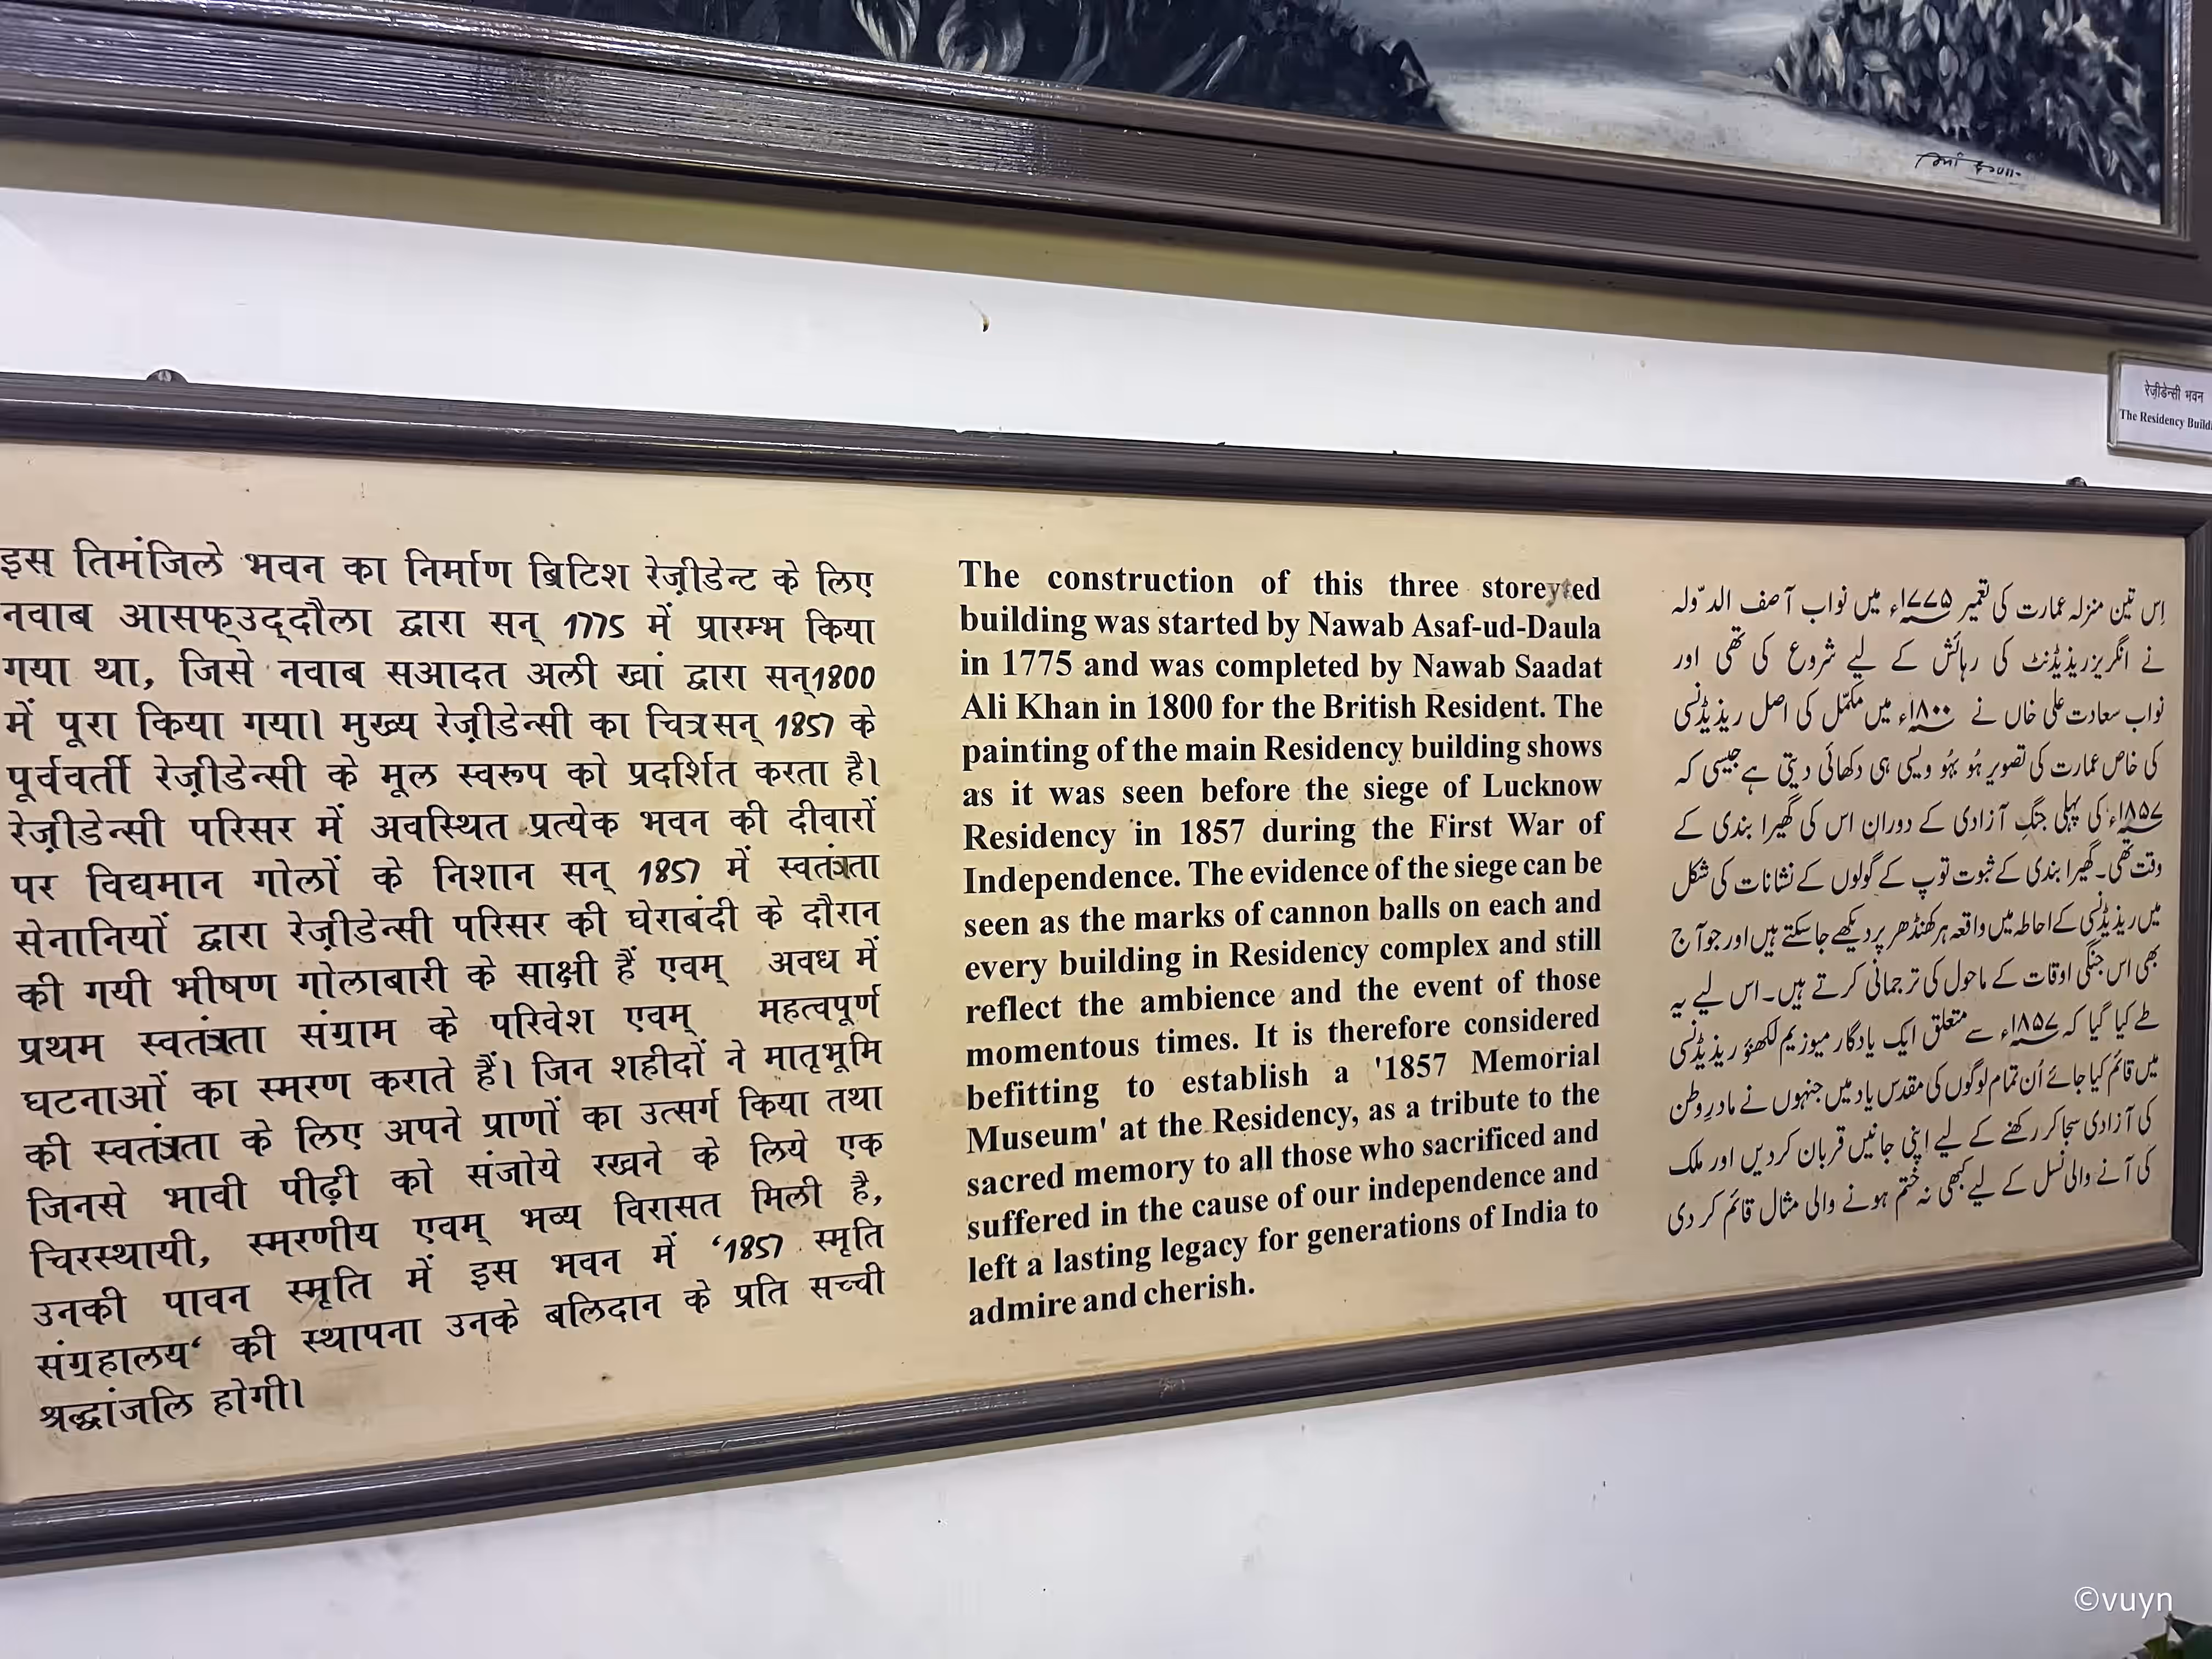 रेज़ीडेन्सी भवन
The Residency Build
इस तिमंजिले भवन का निर्माण ब्रिटिश रेज़ीडेन्ट के लिए
नवाब आसफ्उद्दौला द्वारा सन् 1775 में प्रारम्भ किया
गया था, जिसे नवाब सआदत अली खां द्वारा सन्1800
में पूरा किया गया। मुख्य रेज़ीडेन्सी का चित्र सन् 1857 के
पूर्ववर्ती रेज़ीडेन्सी के मूल स्वरूप को प्रदर्शित करता है।
रेज़ीडेन्सी परिसर में अवस्थित प्रत्येक भवन की दीवारों
पर विद्यमान गोलों के निशान सन् 1857 में स्वतंत्रता
सेनानियों द्वारा रेज़ीडेन्सी परिसर की घेराबंदी के दौरान
की गयी भीषण गोलाबारी के साक्षी हैं एवम् अवध में
प्रथम स्वतंत्रता संग्राम के परिवेश एवम् महत्वपूर्ण
घटनाओं का स्मरण कराते हैं। जिन शहीदों ने मातृभूमि
की स्वतंत्रता के लिए अपने प्राणों का उत्सर्ग किया तथा
जिनसे भावी पीढ़ी को संजोये रखने के लिये एक
चिरस्थायी, स्मरणीय एवम् भव्य विरासत मिली है,
उनकी पावन स्मृति में इस भवन में ‘1857 स्मृति
संग्रहालय‘ की स्थापना उनके बलिदान के प्रति सच्ची
श्रद्धांजलि होगी।
The construction of this three storeyted
building was started by Nawab Asaf-ud-Daula
in 1775 and was completed by Nawab Saadat
Ali Khan in 1800 for the British Resident. The
painting of the main Residency building shows
as it was seen before the siege of Lucknow
Residency in 1857 during the First War of
Independence. The evidence of the siege can be
seen as the marks of cannon balls on each and
every building in Residency complex and still
reflect the ambience and the event of those
momentous times. It is therefore considered
befitting to establish a '1857 Memorial
Museum' at the Residency, as a tribute to the
sacred memory to all those who sacrificed and
suffered in the cause of our independence and
left a lasting legacy for generations of India to
admire and cherish.
اِس تین منزلہ عمارت کی تعمیر ۱۷۷۵ء میں نواب آصف الدّولہ
نے انگریز ریذیڈنٹ کی رہائش کے لیے شروع کی تھی اور
نواب سعادت علی خاں نے ۱۸۰۰ء میں مکمّل کی اصل ریذیڈنسی
کی خاص عمارت کی تصویر ہُو بہُو ویسی ہی دکھائی دیتی ہے جیسی کہ
۱۸۵۷ء کی پہلی جنگِ آزادی کے دوران اس کی گھیرا بندی کے
وقت تھی۔ گھیرا بندی کے ثبوت توپ کے گولوں کے نشانات کی شکل
میں ریذیڈنسی کے احاطہ میں واقعہ ہر کھنڈھر پر دیکھے جاسکتے ہیں اور جو آج
بھی اس جنگی اوقات کے ماحول کی ترجمانی کرتے ہیں۔ اس لیے یہ
طے کیا گیا کہ ۱۸۵۷ء سے متعلق ایک یادگار میوزیم لکھنؤ ریذیڈنسی
میں قائم کیا جائے اُن تمام لوگوں کی مقدس یاد میں جنہوں نے مادرِ وطن
کی آزادی سجا کر رکھنے کے لیے اپنی جانیں قربان کردیں اور ملک
کی آنے والی نسل کے لیے کبھی نہ ختم ہونے والی مثال قائم کر دی
©vuyn